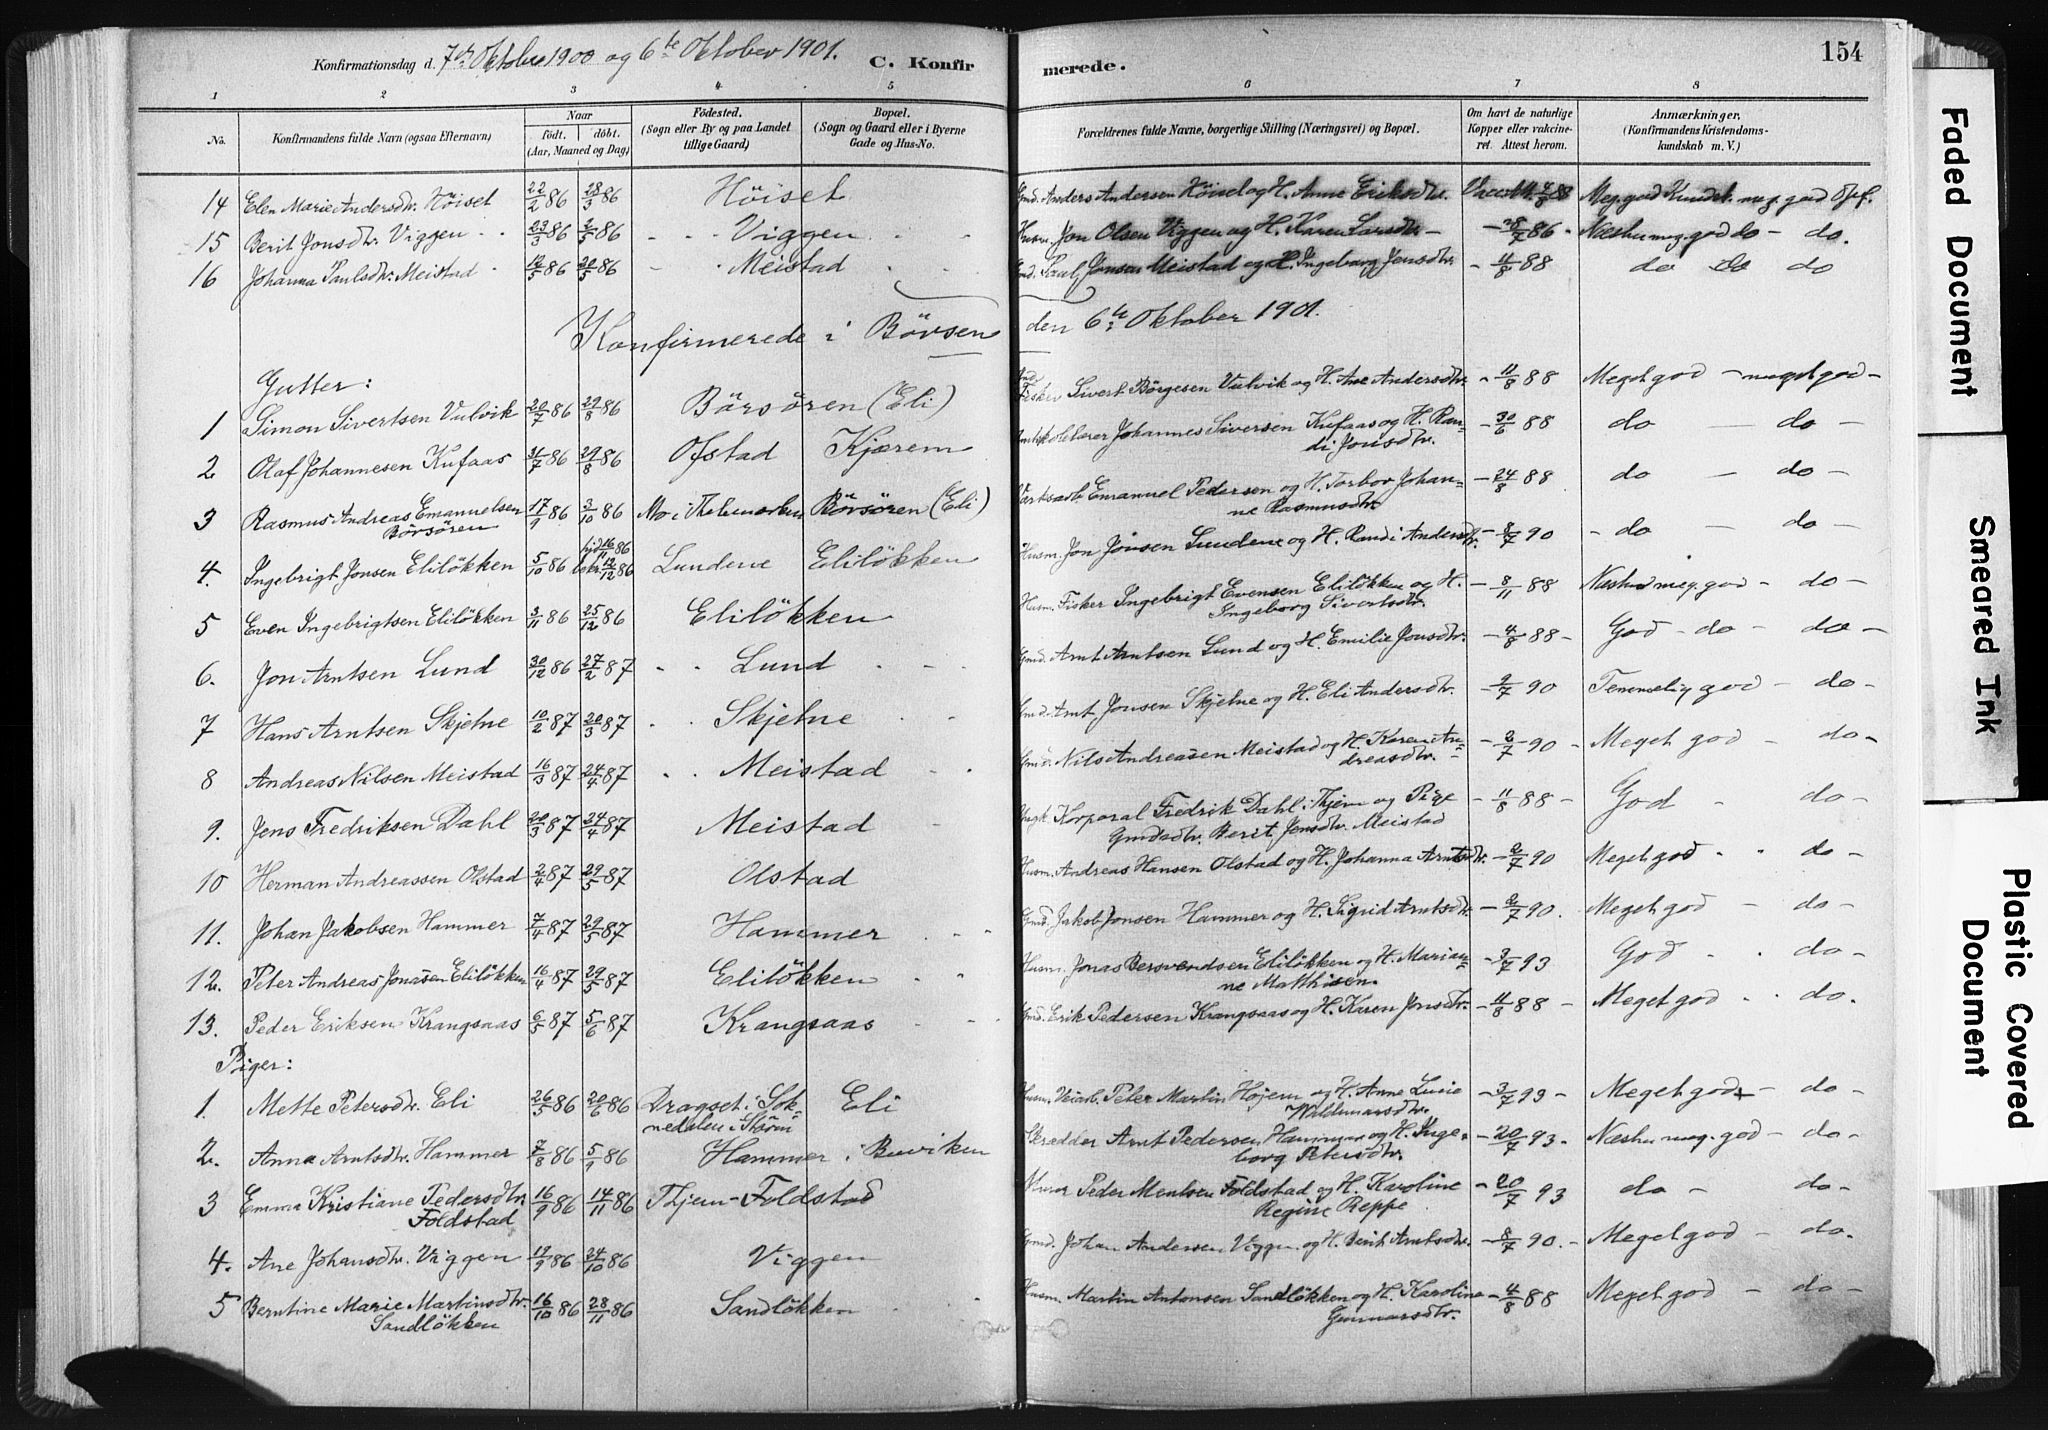 Konfirmationsdag d. 7de Oktober 1900 og 6te Oktober 1901. C. Konfirmerede. 154
1 2 3 4 5 6 7 8
No. Konfirmandens fulde Navn (ogsaa Efternavn) Naar født. døbt. (Aar, Maaned og Dag) Födested. (Sogn eller By og paa Landet tillige Gaard) Bopæl. (Sogn og Gaard eller i Byerne Gade og Hus-No. Forældrenes fulde Navne, borgerlige Stilling (Næringsvei) og Bopæl. Om havt de naturlige Kopper eller vakcineret. Attest herom. Anmærkninger. (Konfirmandens Kristendomskundskab m. V.)
14 Elen Marie Andersdtr. Höiset 22/2 86 28/3 86 Höiset Gmd. Anders Andersen Höiset og H. Anne Eriksdtr. Meg. god Kundsk. meg. god Opf.
15 Berit Jonsdtr. Viggen 23/3 86 2/5 86 Viggen Husm. Jon Olsen Viggen og H. Karen Larsdtr. - 28/7 86 - Næsten meg. god do - do.
16 Johanna Paulsdtr. Meistad 12/5 86 20/5 86 Meistad Gmd. Paul Jonsen Meistad og H. Ingeborg Jonsdtr. - 4/8 88 do do do
Konfirmerede i Börsen den 6te Oktober 1901.
Gutter:
1 Simon Sivertsen Vulvik 20/7 86 29/8 86 Börsören (Eli) Fisker Sivert Börgesen Vulvik og H. Ane Andersdtr. - 11/8 88 Meget god - meget god -
2 Olaf Johannesen Kufaas 31/7 86 29/8 86 Ofstad Kjærem Johannes Siversen Kufaas og H. Randi Jonsdtr. - 30/6 88 do - do -
3 Rasmus Andreas Emanuelsen Börsören 17/9 86 3/10 86 Mo i Thelemarken Börsören (Eli) Emanuel Pedersen og H. Torbor Johanne Rasmusdtr. - 24/8 88 do - do -
4. Ingebrigt Jonsen Eliløkken 5/10 86 hjd 16/11 86 bekr. 12/12 86 Lundene Eliløkken Husm. Jon Jonsen Lundene og H. Randi Andersdtr. - 8/7 90 - do - do -
5 Even Ingebrigtsen Eliløkken 3/11 86 25/12 86 Eliløkken Husm. Fisker Ingebrigt Evensen Eliløkken og H. Ingeborg Sivertsdtr. - 8/11 88 Næsten meg. god - do -
6. Jon Arntsen Lund 30/12 86 27/2 87 Lund Gmd. Arnt Arntsen Lund og H. Emilie Jonsdtr. - 4/8 88 - God - do - do -
7 Hans Arntsen Skjetne 10/2 87 20/3 87 Skjetne Gmd. Arnt Jonsen Skjetne og H. Eli Andersdtr. - 9/7 90 Temmelig god - do -
8 Andreas Nilsen Meistad 16/3 87 24/4 87 Meistad Gmd. Nils Andreasen Meistad og H. Karen Andreasdtr. - 2/7 90 - Meget god - do -
9. Jens Fredriksen Dahl 20/3 87 24/4 87 Meistad Ungk. Korporal Fredrik Dahl i Thjem og Pige Gmdsdtr. Berit Jensdtr. Meistad - 11/8 88 - God - do -
10 Herman Andreassen Olstad 2/4 87 29/5 87 Olstad Husm. Andreas Hansen Olstad og H. Johanna Arntsdtr. - 2/7 90 Meget god do -
11. Johan Jakobsen Hammer 7/4 87 29/5 87 Hammer Gmd. Jakob Jonsen Hammer og H. Sigrid Arntsdtr. - 2/7 90. Meget god - do -
12. Peter Andreas Jonasen Eliløkken 16/4 87 29/5 87 Eliløkken Husm. Jonas Bersvendsen Eliløkken og H. Marianne Matthisen. - 3/7 93 God do -
13. Peder Eriksen Krangsaas 6/5 87 5/6 87 Krangsaas Gmd. Erik Pedersen Krangsaas og H. Karen Jonsdtr. - 11/8 88 - Meget god do.
Piger:
1. Mette Petersdtr. Eli 26/5 86 20/6 86 Dragset i Soknedalen i Støren Eli Husm. Veiarb. Peter Martin Højem og H. Anne Lucie Waldemarsdtr. - 3/7 93 - Meget god - do -
2. Anna Arntsdtr. Hammer 7/8 86 5/9 86 Hammer i Buviken Skrædder Arnt Pedersen Hammer og H. Ingeborg Petersdtr. - 20/7 93. Næsten meg. god - do -
3 Emma Kristiane Pedersdtr. Foldstad 16/9 86 14/11 86 Thjem - Foldstad Murer Peder Mentsen Foldstad og H. Karoline Regine Reppe - 20/7 93 do - do -
4. Ane Johansdtr. Viggen 19/9 86 24/10 86 Viggen Gmd. Johan Andersen Viggen og H. Berit Arntsdtr. - 8/7 90. - Meget god - do.
5 Berntine Marie Martinsdtr. Sandløkken 16/10 86 28/11 86 Sandløkken Husm. Martin Antonsen Sandløkken og H. Karoline Gunnarsdtr. - 4/8 88 Meget god - do -
Faded Document
Smeared Ink
Plastic Covered Document